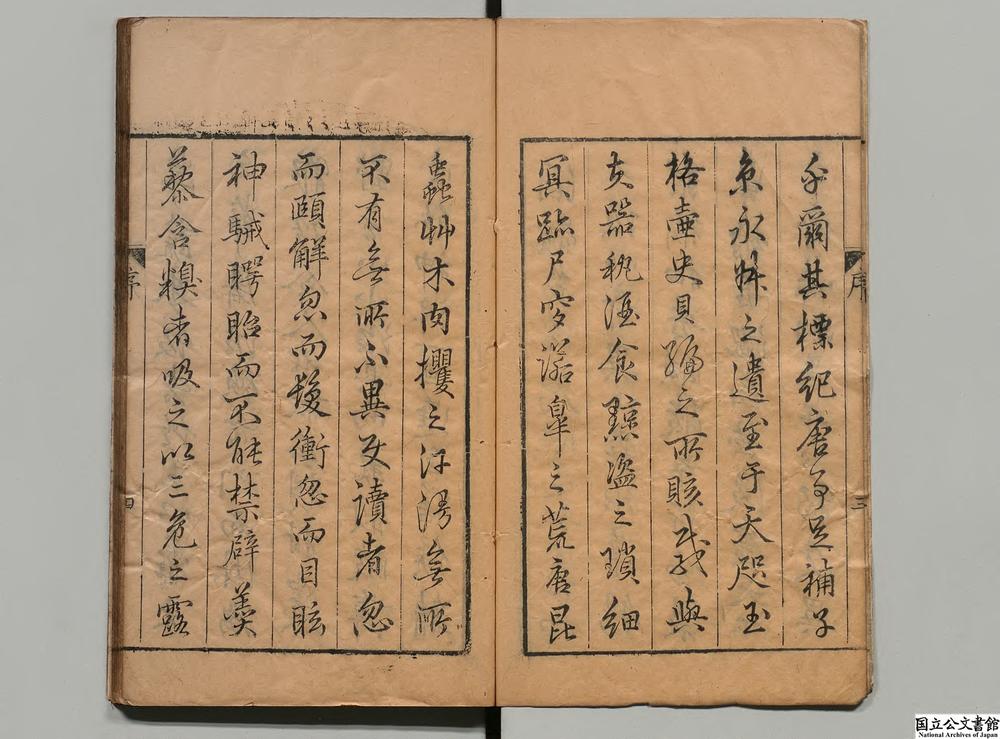 乎爾其標紀唐事足補子
京永叔之遺至于天咫玉
格壺史貝編之所賅載與
夫器秇酒食黥盜之瑣細
冥跡尸穸諾皐之荒唐昆
序
三
蟲艸木肉攫之汗漫無所
不有無所不異使讀者忽
而頤解忽而髮衝忽而目眩
神駴愕眙而不能禁辟羹
藜含糗者吸之以三危之露
序
四
国立公文書館
National Archives of Japan